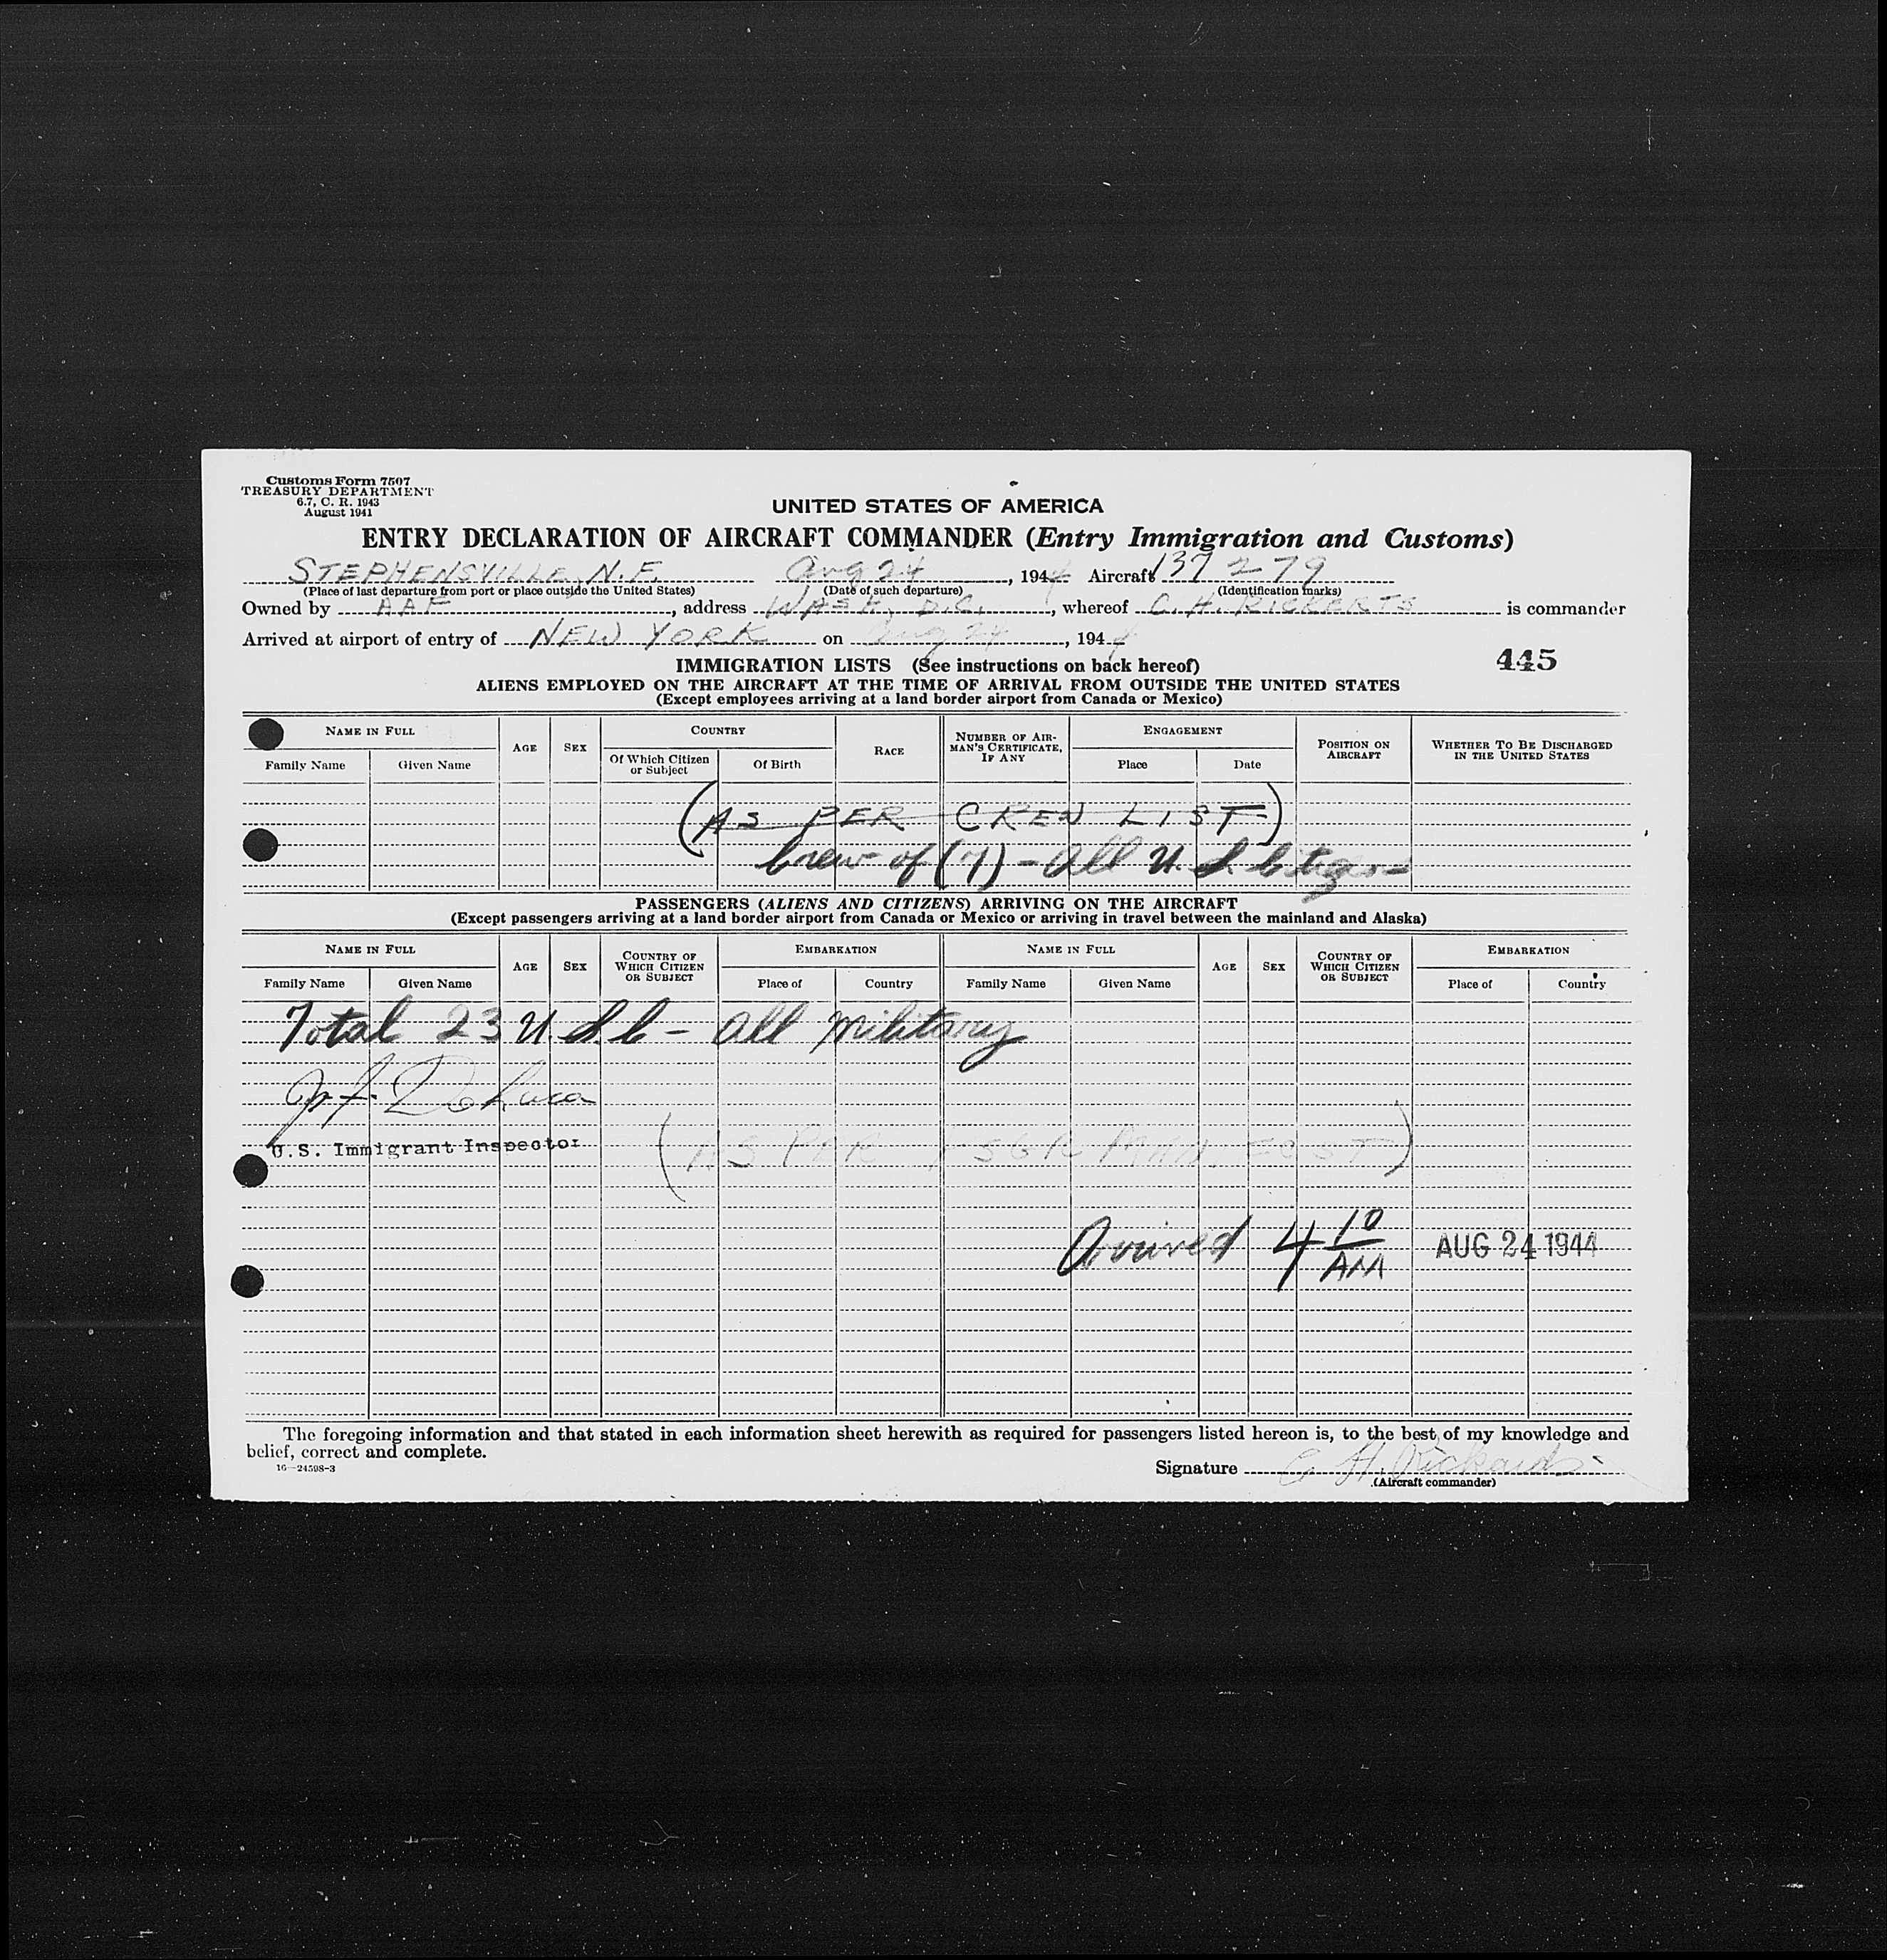 Customs Form 7507
TREASURY DEPARTMENT
6.7, C. R. 1943
August 1941
UNITED STATES OF AMERICA
ENTRY DECLARATION OF AIRCRAFT COMMANDER (Entry Immigration and Customs)
STEPHENSVILLE, N.F. Aug 24, 1944 Aircraft 137279
(Place of last departure from port or place outside the United States) (Date of such departure) (Identification marks)
Owned by AAF, address WASH, D.C., whereof C. H. RICKERTS is commander
Arrived at airport of entry of NEW YORK on Aug 24, 1944
445
IMMIGRATION LISTS (See instructions on back hereof)
ALIENS EMPLOYED ON THE AIRCRAFT AT THE TIME OF ARRIVAL FROM OUTSIDE THE UNITED STATES
(Except employees arriving at a land border airport from Canada or Mexico)
NAME IN FULL AGE SEX COUNTRY RACE NUMBER OF AIRMAN'S CERTIFICATE, IF ANY ENGAGEMENT POSITION ON AIRCRAFT WHETHER TO BE DISCHARGED IN THE UNITED STATES
Family Name Given Name Of Which Citizen or Subject Of Birth Place Date
(AS PER CREW LIST)
Crew of (7) - All U.S. Citizens
PASSENGERS (ALIENS AND CITIZENS) ARRIVING ON THE AIRCRAFT
(Except passengers arriving at a land border airport from Canada or Mexico or arriving in travel between the mainland and Alaska)
NAME IN FULL AGE SEX COUNTRY OF WHICH CITIZEN OR SUBJECT EMBARKATION NAME IN FULL AGE SEX COUNTRY OF WHICH CITIZEN OR SUBJECT EMBARKATION
Family Name Given Name Place of Country Family Name Given Name Place of Country
Total 23 U.S.C - All Military
U.S. Immigrant Inspector
(AS PER PSGR MANIFEST)
Arrived 4 10 AM AUG 24 1944
The foregoing information and that stated in each information sheet herewith as required for passengers listed hereon is, to the best of my knowledge and
belief, correct and complete.
16—24598-3
Signature C. H. Rickards
(Aircraft commander)